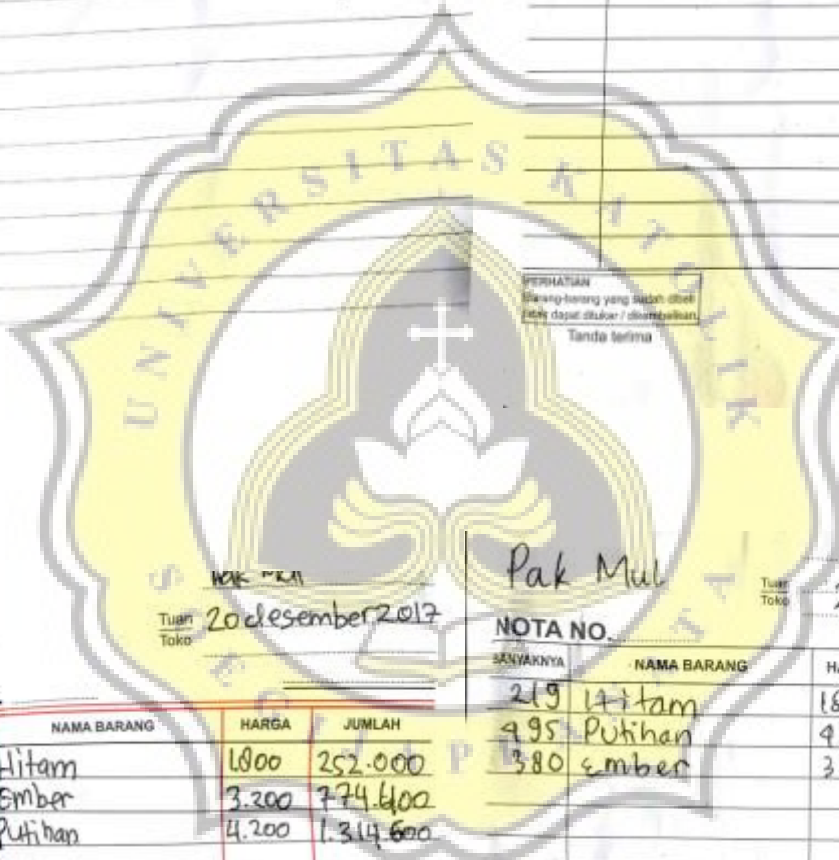 UNIVERSITAS KATOLIK
PERHATIAN
Barang-barang yang sudah dibeli
tidak dapat ditukar / dikembalikan
Tanda terima
Tuan
Toko
20 desember 2017
NAMA BARANG HARGA JUMLAH
Hitam 1.800 252.000
Ember 3.200
Putihan 4.200 1.314.600
Pak Mul
Tuan
Toko
NOTA NO.
BANYAKNYA NAMA BARANG
219 Hitam
495 Putihan
380 Ember